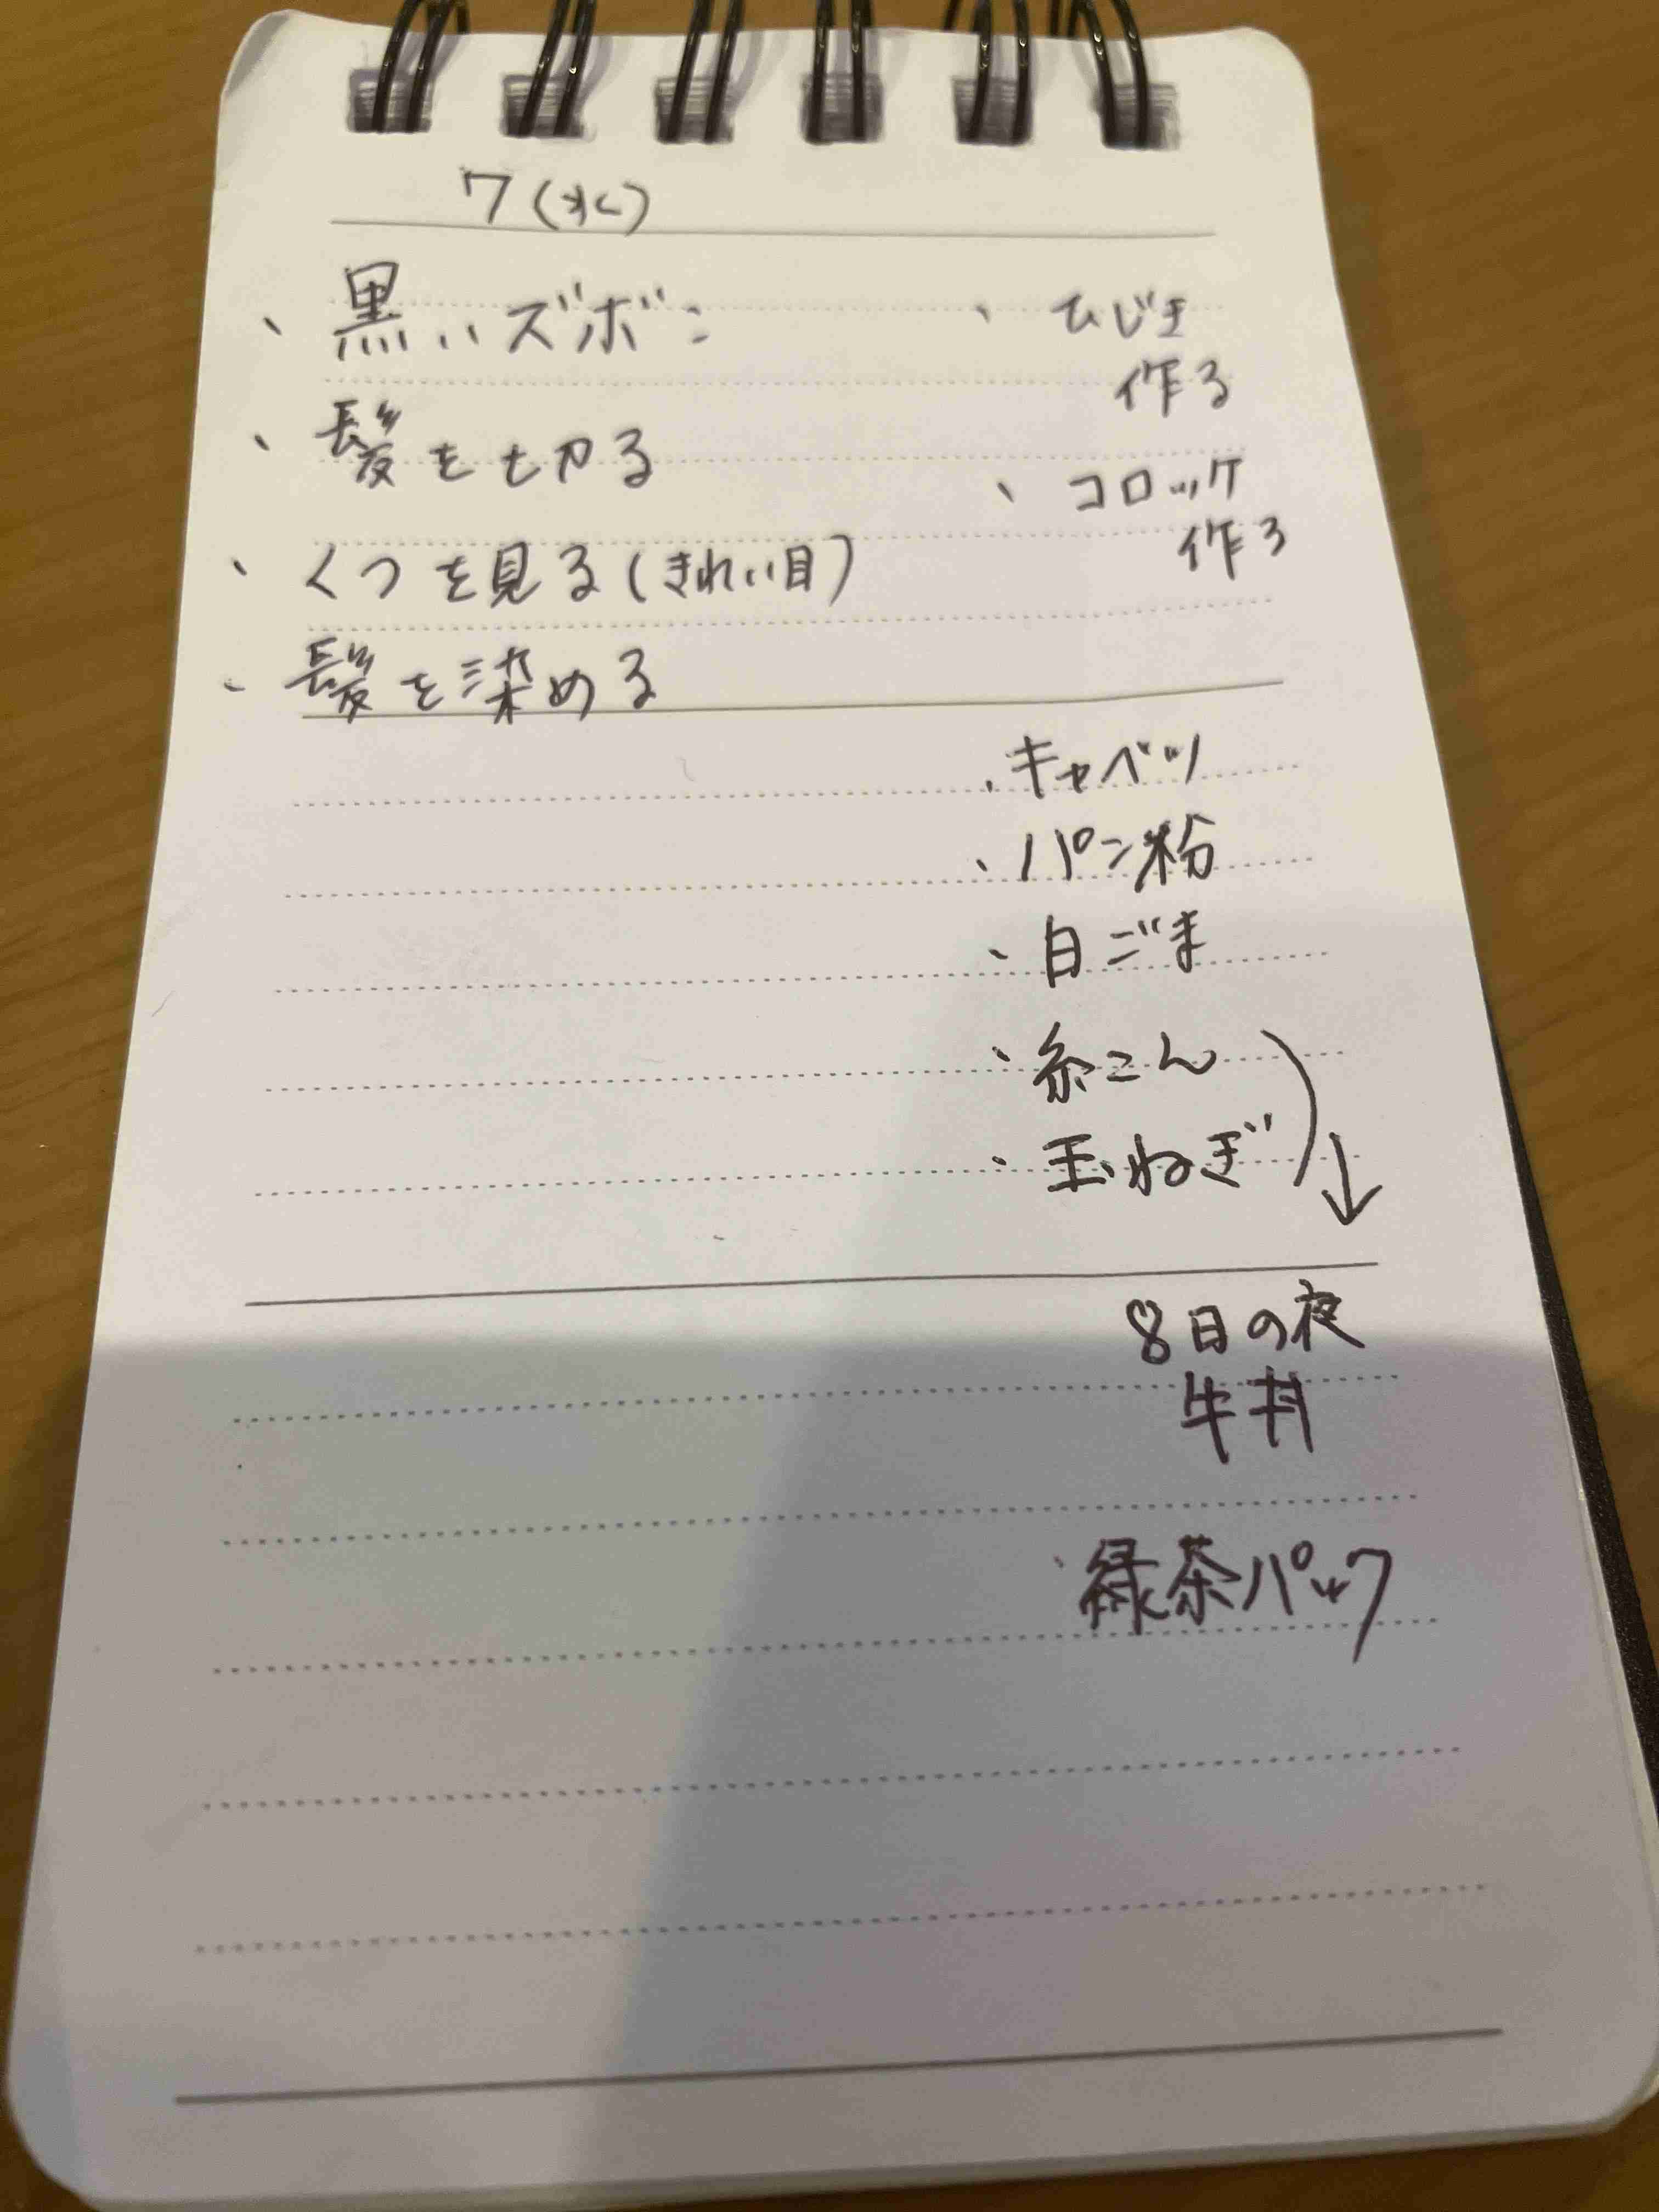 7(水)
、黒いズボン
、髪を切る
、くつを見る(きれい目)
、髪を染める
、ひじき
作る
、コロッケ
作る
、キャベツ
、パン粉
、白ごま
、糸こん
、玉ねぎ
↓
8日の夜
牛丼
、緑茶パック